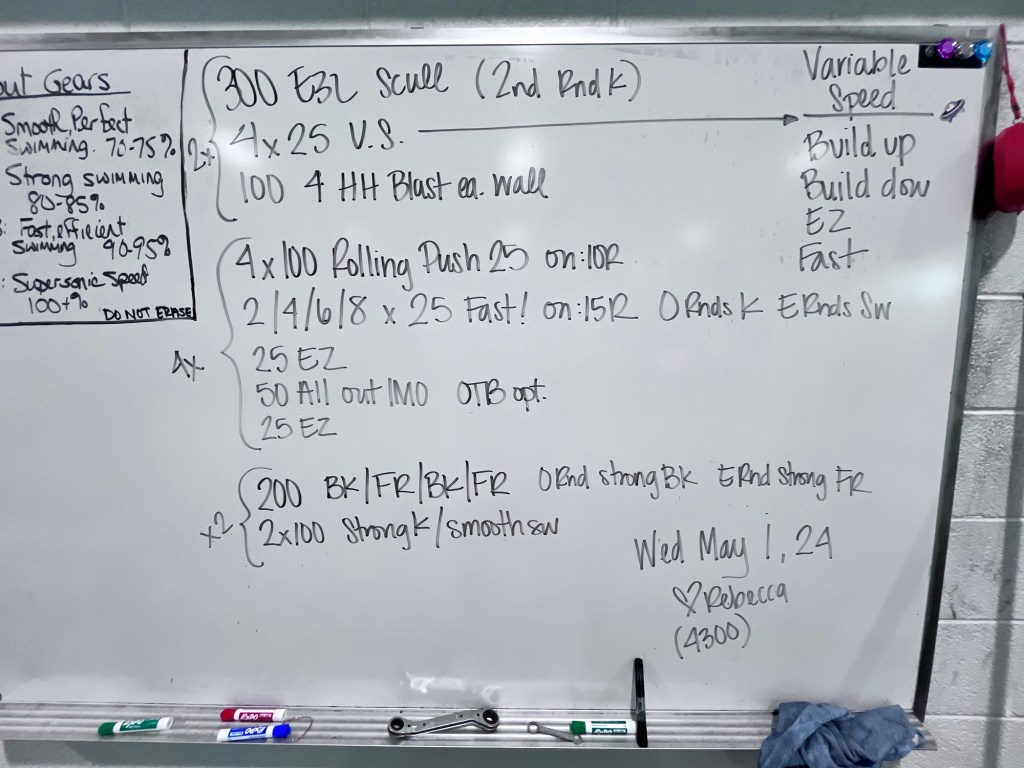 out Gears
Smooth, Perfect
Swimming. 70-75%
Strong swimming
80-85%
: Fast, efficient
swimming 90-95%
: Supersonic Speed
100+%
DO NOT ERASE
2x
300 E3L Scull (2nd Rnd K)
4x25 V.S.
100 4 HH Blast ea. wall
Variable
Speed
Build up
Build dow
EZ
Fast
4x
4x100 Rolling Push 25 on :10R
2/4/6/8 x 25 Fast! on :15R O Rnds K E Rnds Sw
25 EZ
50 All out IMO OTB opt.
25 EZ
x2
200 BK/FR/BK/FR O Rnd strong BK E Rnd strong FR
2x100 Strong K/smooth sw
Wed May 1, 24
♡ Rebecca
(4300)
EXPO